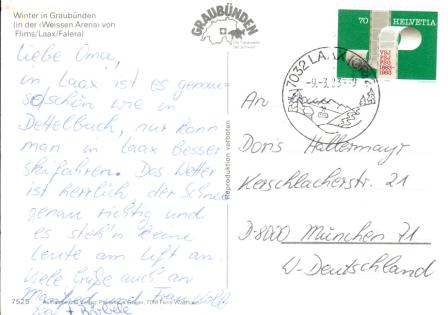 Winter in Graubünden
(in der ‹Weissen Arena› von
Flims/Laax/Falera)
GRAUBÜNDEN
Die Ferienecke
der Schweiz
70 HELVETIA
1883
1983
7032 LAAX GR
-9.-3.83-9
Liebe Oma,
in Laax ist es genau-
so schön wie in
Dettelbach, nur kann
man in Laax besser
skifahren. Das Wetter
ist herrlich, der Schnee
genau richtig und
es steh'n keine
Leute am Lift an.
Viele Grüße auch an
+ Bärbele
Reproduktion verboten
An
Doris Hallermayr
Kerschlacherstr. 21
D-8000 München 71
W-Deutschland
7525